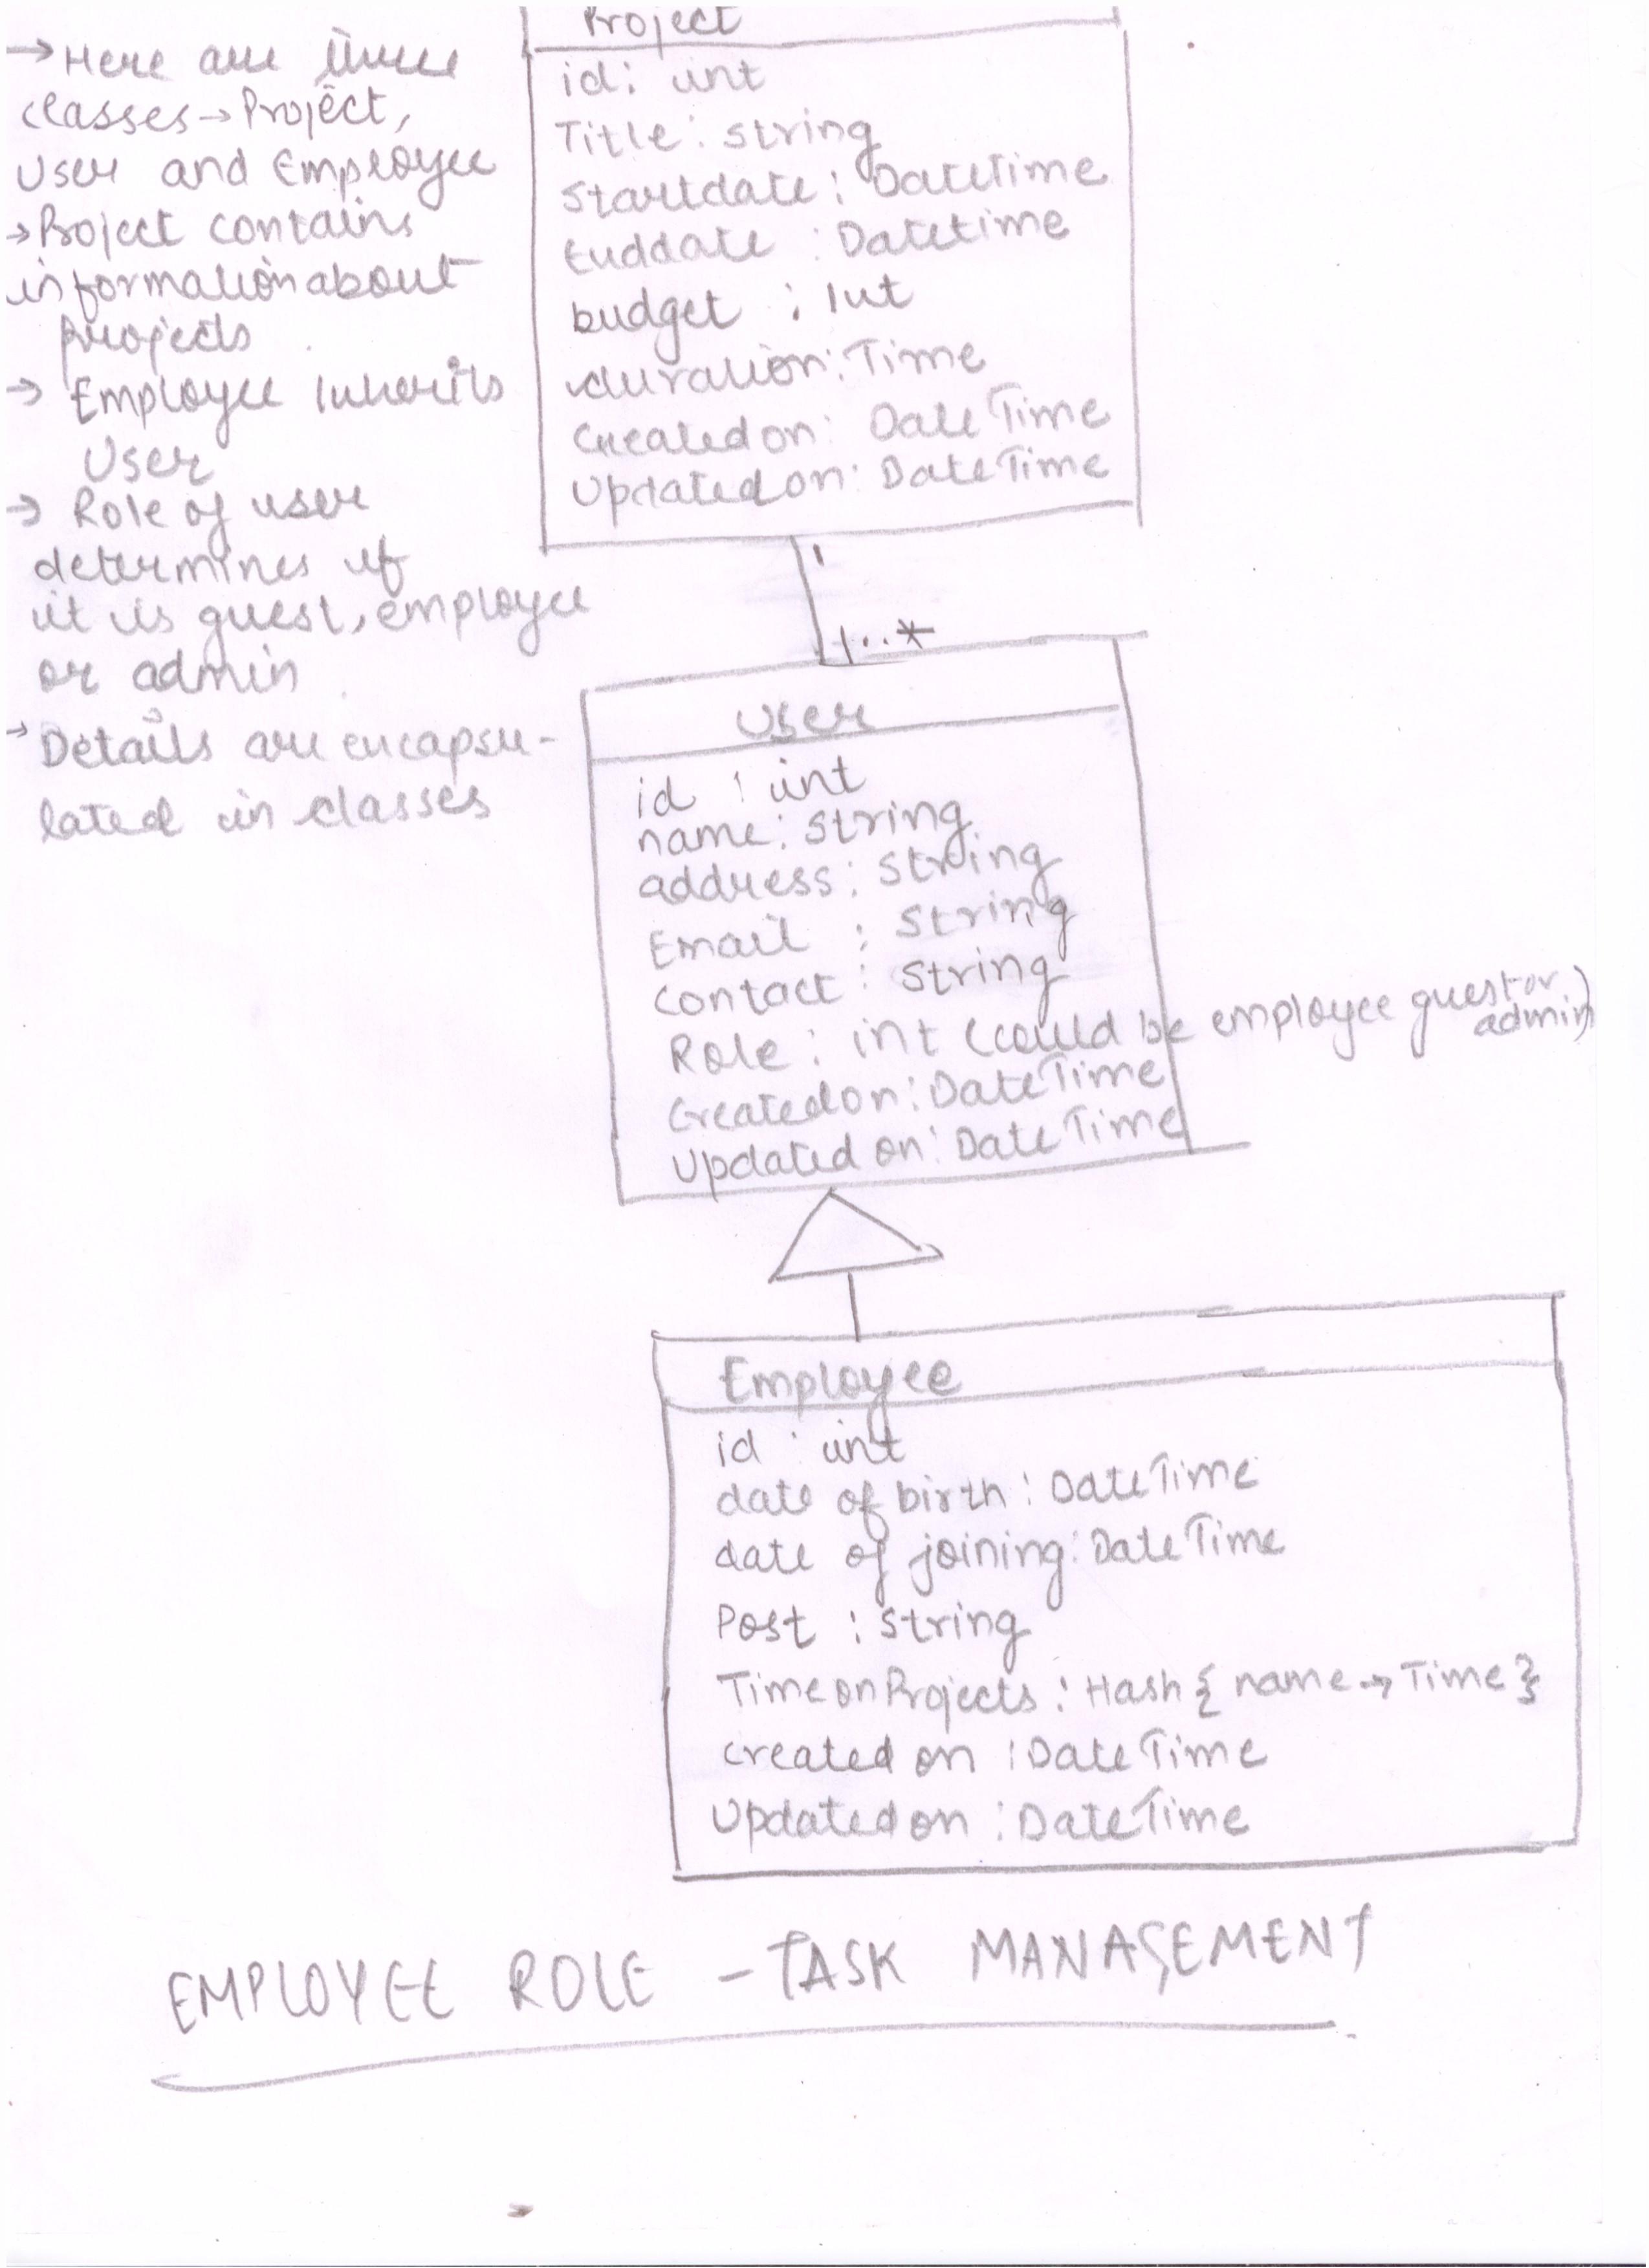 → Here are three
classes → Project,
User and Employee
→ Project contains
information about
projects
→ Employee Inherits
User
→ Role of user
determines if
it is guest, employee
or admin
→ Details are encapsu-
lated in classes
Project
id: int
Title: string
Startdate: DateTime
Enddate : Datetime
budget : Int
duration: Time
Createdon: DateTime
Updatedon: DateTime
1
1..*
User
id : int
name: String
address: String
Email : String
Contact: String
Role: int (could be employee guest or
admin)
Createdon: DateTime
Updated on: DateTime
Employee
id : int
date of birth: DateTime
date of joining: DateTime
Post : String
TimeonProjects: Hash { name → Time }
created on : DateTime
Updatedon : DateTime
EMPLOYEE ROLE - TASK MANAGEMENT